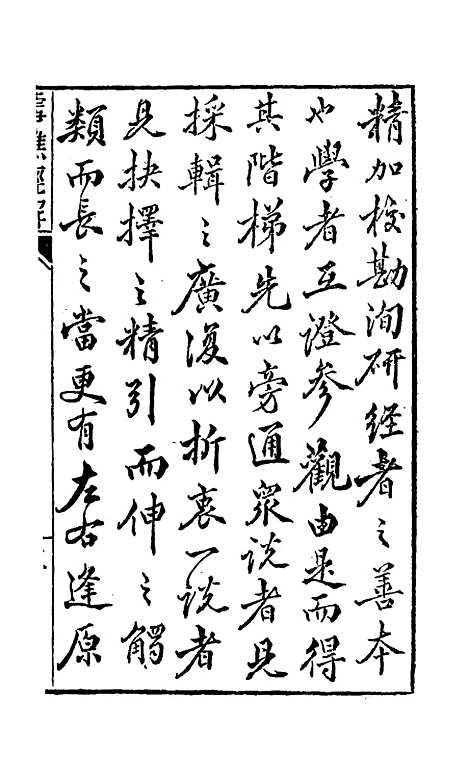 精加校勘洵研经者之善本
也學者互證參觀由是而得
其階梯先以旁通眾说者見
採輯之廣復以折衷一说者
見抉擇之精引而伸之觸
類而長之當更有左右逢原